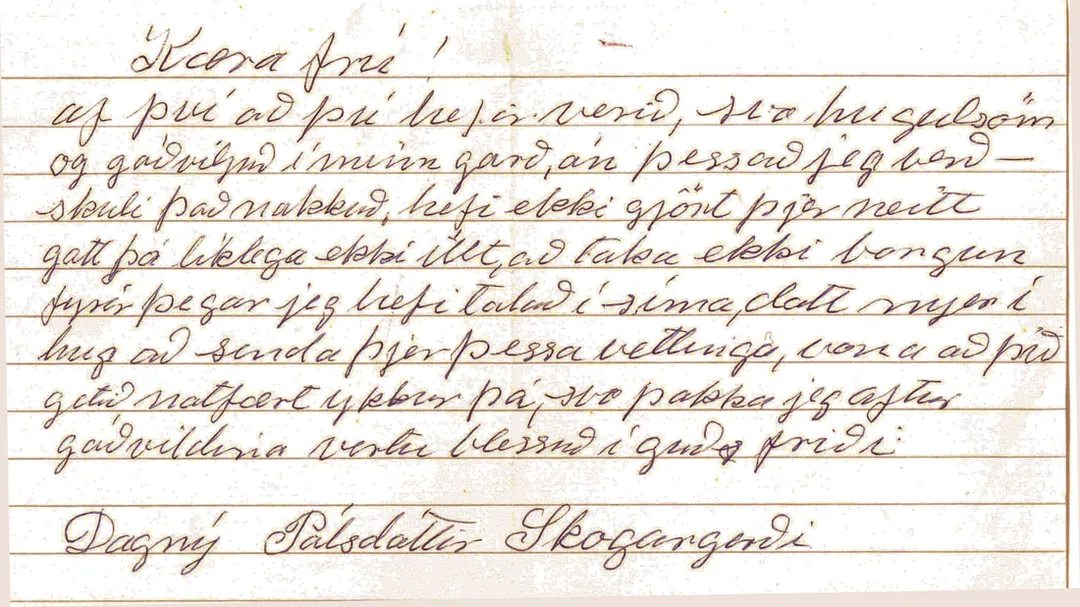 Kæra frú!
af því að þú hefir verið, svo hugulsöm
og góðviljuð í minn garð, án þess að jeg verð–
skuli það nokkuð, hefi ekki gjört þjer neitt
gott þó líklega ekki illt, að taka ekki borgun
fyrir þegar jeg hefi talað í síma, datt mjer í
hug að senda þjer þessa vettlinga, vona að þið
getið, notfært ykkur þá, svo þakka jeg aftur
góðvildina vertu blessuð í guðs friði
Dagný Pálsdóttir Skógargerði